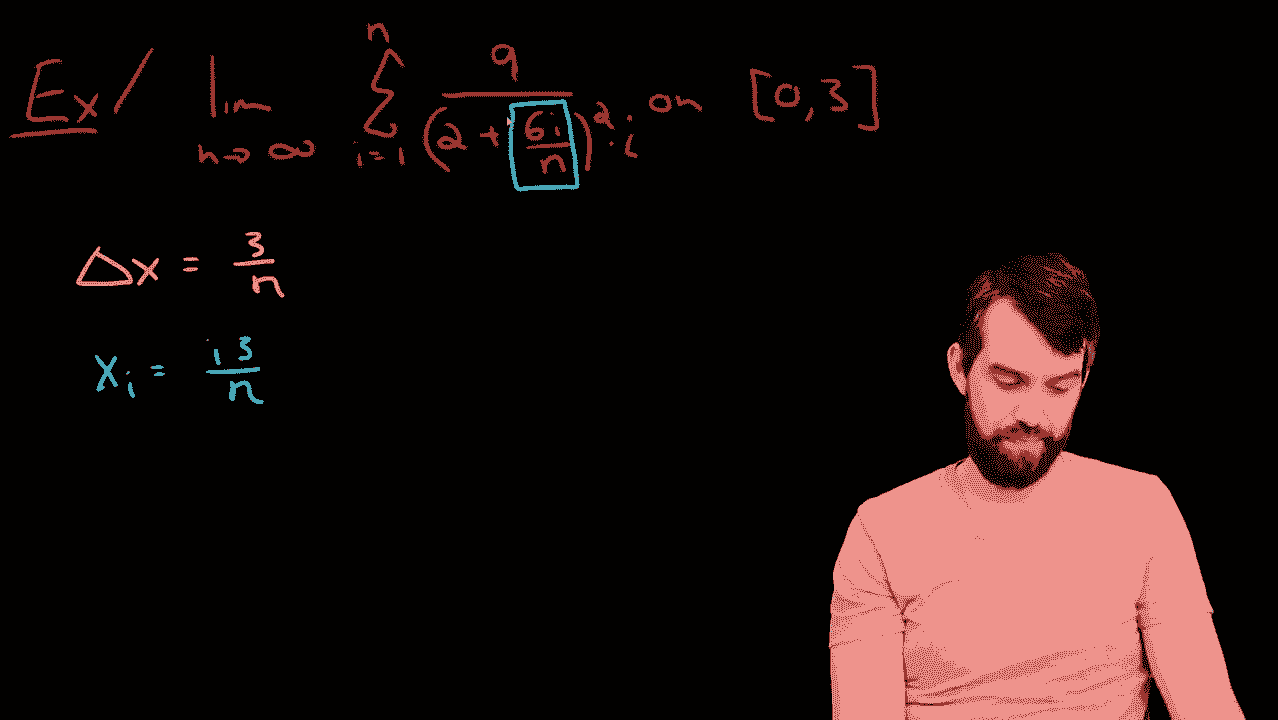 Ex/ lim n→∞ n Σ i=1 9/((2 + 6i/n)² · i) on [0,3]
Δx = 3/n
xᵢ = i3/n